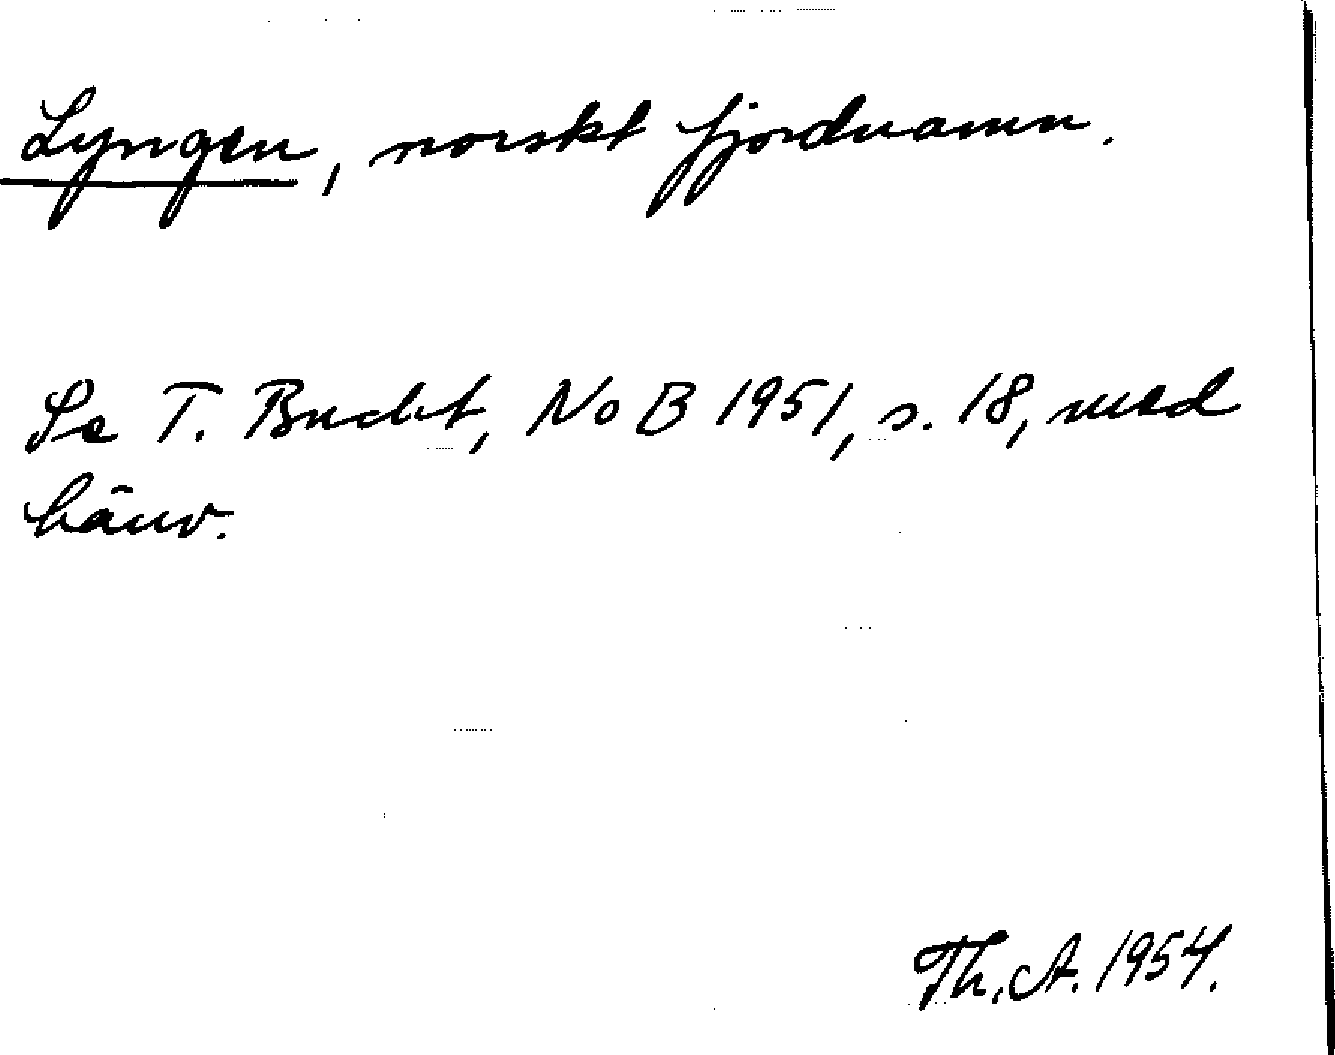 Lyngen, norskt fjordnamn.
Se T. Bucht, NoB 1951, s. 18, med
hänv.
Th. A. 1954.